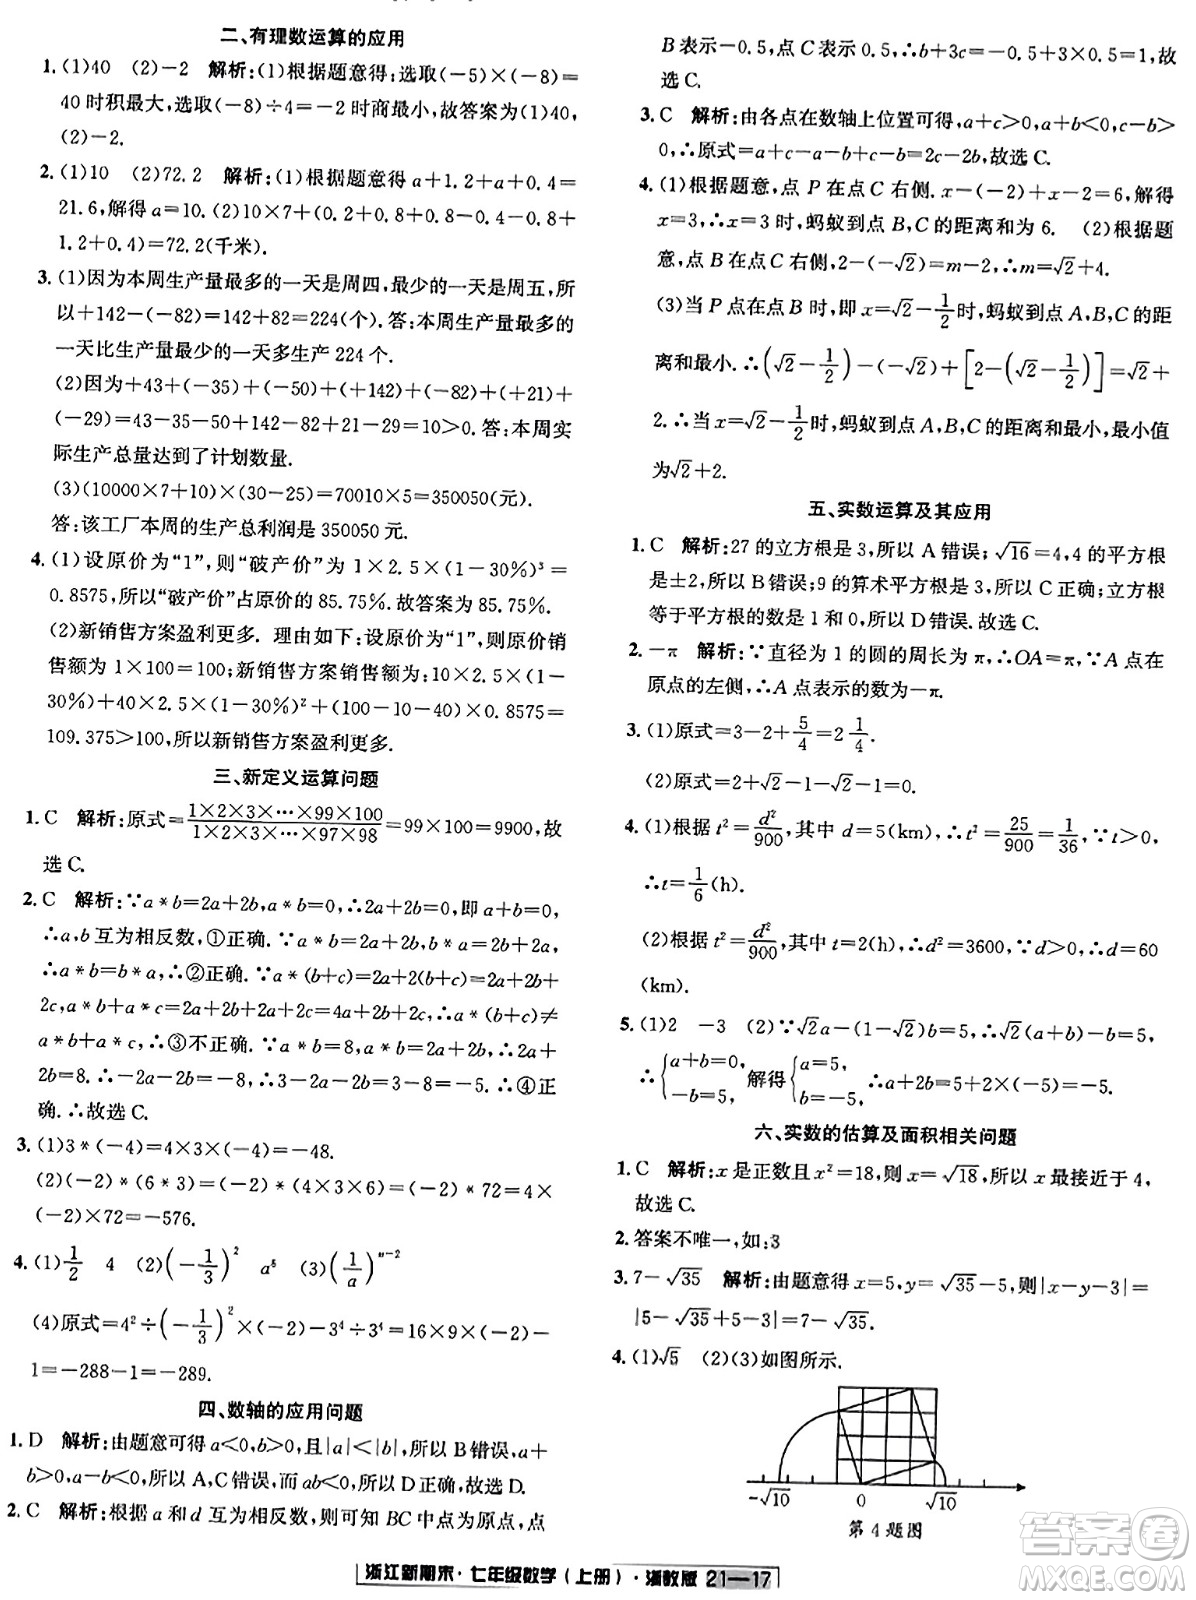 二、有理数运算的应用
1.(1)40 (2)-2 解析:(1)根据题意得:选取(-5)×(-8)=
40时积最大,选取(-8)÷4=-2时商最小,故答案为(1)40,
(2)-2.
2.(1)10 (2)72.2 解析:(1)根据题意得a+1.2+a+0.4=
21.6,解得a=10.(2)10×7+(0.2+0.8+0.8-0.4+0.6+
1.2+0.4)=72.2(千米).
3.(1)因为本周生产量最多的一天是周四,最少的一天是周五,所
以+142-(-82)=142+82=224(个).答:本周生产量最多的
一天比生产量最少的一天多生产224个.
(2)因为+43+(-35)+(-50)+(+142)+(-82)+(+21)+
(-29)=43-35-50+142-82+21-29=10>0.答:本周实
际生产总量达到了计划数量.
(3)(10000×7+10)×(30-25)=70010×5=350050(元).
答:该工厂本周的生产总利润是350050元.
4.(1)设原价为“1”,则“破产价”为1×2.5×(1-30%)³=
0.8575,所以“破产价”占原价的85.75%.故答案为85.75%.
(2)新销售方案盈利更多. 理由如下:设原价为“1”,则原价销
售额为1×100=100;新销售方案销售额为10×2.5×(1-
30%)+40×2.5×(1-30%)²+(100-10-40)×0.8575=
109.375>100,所以新销售方案盈利更多.
三、新定义运算问题
1.C 解析:原式=(1×2×3×…×99×100)/(1×2×3×…×97×98)=99×100=9900,故
选C.
2.C 解析:∵a*b=2a+2b,a*b=0,∴2a+2b=0,即a+b=0,
∴a,b互为相反数,①正确.∵a*b=2a+2b,b*a=2b+2a,
∴a*b=b*a,∴②正确.∵a*(b+c)=2a+2(b+c)=2a+2b+
2c,a*b+a*c=2a+2b+2a+2c=4a+2b+2c,∴a*(b+c)≠
a*b+a*c,∴③不正确.∵a*b=8,∴2a+2b=8,∴a+b=
4.∴(-a)*(-b)=-2a-2b=-2(a+b)=-8,∴④正
确.∴故选C.
3.(1)3*(-4)=4×3×(-4)=-48.
(2)(-2)*(6*3)=(-2)*(4×3×6)=(-2)*72=4×
(-2)×72=-576.
4.(1)1/2 4 (2)(-1/3)² a⁵ (3)(1/a)ⁿ⁻²
(4)原式=4²÷(-1/3)²×(-2)-3⁴÷3⁴=16×9×(-2)-
1=-288-1=-289.
四、数轴的应用问题
1.D 解析:由题意可得a<0,b>0,且|a|<|b|,所以B错误,a+
b>0,a-b<0,所以A,C错误,而ab<0,所以D正确.故选D.
2.C 解析:根据a和d互为相反数,则可知BC中点为原点,点
B表示-0.5,点C表示0.5,∴b+3c=-0.5+3×0.5=1,故
选C.
3.C 解析:由各点在数轴上位置可得,a+c>0,a+b<0,c-b>
0,∴原式=a+c-a-b+c-b=2c-2b,故选C.
4.(1)根据题意,点P在点C右侧.x-(-2)+x-2=6,解得
x=3,∴x=3时,蚂蚁到点B,C的距离和为6. (2)根据题
意,点B在点C右侧,2-(-√2)=m-2,∴m=√2+4.
(3)当P点在点B时,即x=√2-1/2时,蚂蚁到点A,B,C的距
离和最小.∴(√2-1/2)-(-2)+[2-(√2-1/2)]=√2+
2.∴当x=√2-1/2时,蚂蚁到点A,B,C的距离和最小,最小值
为√2+2.
五、实数运算及其应用
1.C 解析:27的立方根是3,所以A错误;√16=4,4的平方根
是±2,所以B错误;9的算术平方根是3,所以C正确;立方根
等于平方根的数是0,所以D错误.故选C.
2.-π 解析:∵直径为1的圆的周长为π,∴OA=π,∵A点在
原点的左侧,∴A点表示的数为-π.
3.(1)原式=3-2+5/4=2 1/4.
(2)原式=2+√2-1-√2-1=0.
4.(1)根据t²=d²/900,其中d=5(km),∴t²=25/900=1/36,∵t>0,
∴t=1/6(h).
(2)根据t²=d²/900,其中t=2(h),∴d²=3600,∵d>0,∴d=60
(km).
5.(1)2 -3 (2)∵√2a-(1-√2)b=5,∴√2(a+b)-b=5.
∴{a+b=0, -b=5, 解得{a=5, b=-5, ∴a+2b=5+2×(-5)=-5.
六、实数的估算及面积相关问题
1.C 解析:x是正数且x²=18,则x=√18,所以x最接近于4,
故选C.
2.答案不唯一,如:3
3.7-√35 解析:由题意得x=5,y=√35-5,则|x-y-3|=
|5-√35+5-3|=7-√35.
4.(1)√5 (2)(3)如图所示.
-√10 0 √10
第4题图
浙江新期末·七年级数学(上册)·浙教版 21—17
答案卷
MXQE.COM